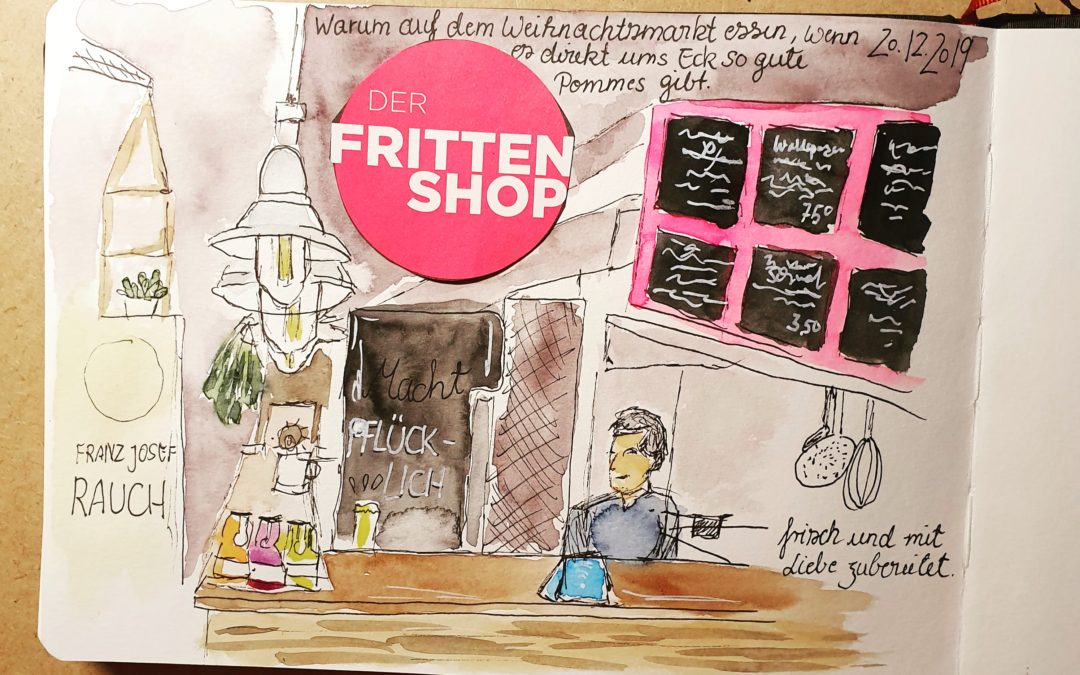 Warum auf dem Weihnachtsmarkt essen, wenn
es direkt ums Eck so gute
Pommes gibt.
20.12.2019
DER
FRITTEN
SHOP
750
3,50
Macht
PFLÜCK-
LICH
FRANZ JOSEF
RAUCH
frisch und mit
Liebe zubereitet.